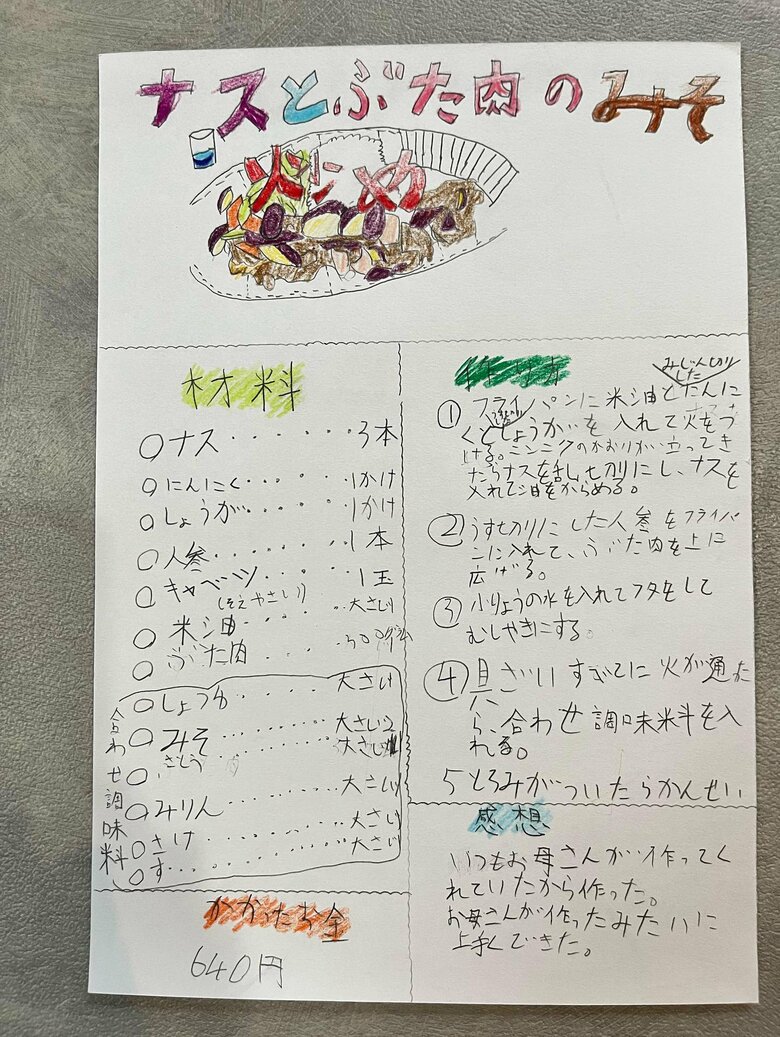 ナスとぶた肉のみそ
炒め
材料
○ナス・・・・・・・3本
○にんにく・・・・・1かけ
○しょうが・・・・・1かけ
○人参・・・・・・1本
○キャベツ・・・・・1玉
(そえやさい)
○米油・・・・・・大さじ1
○ぶた肉・・・・・300グラム
合わせ調味料
○しょうゆ・・・・・大さじ1
○みそ・・・・・・大さじ2
○さとう・・・・・大さじ
○みりん・・・・・大さじ1
○さけ・・・・・・大さじ1
○す・・・・・・・大さじ1
かかったお金
640円
作り方
みじん切り
した
①フライパンに米油とにんに
くとしょうがを入れて火をつ
ける。ニンニクのかおりが立ってき
たらナスを乱切りにし、ナスを
入れて油をからめる。
②うす切りにした人参をフライパ
ンに入れて、ぶた肉を上に
広げる。
③小りょうの水を入れてフタをして
むしやきにする。
④具ざいすべてに火が通った
ら、合わせ調味料を入
れる。
5とろみがついたらかんせい
感想
いつもお母さんが作ってく
れていたから作った。
お母さんが作ったみたいに
上手くできた。